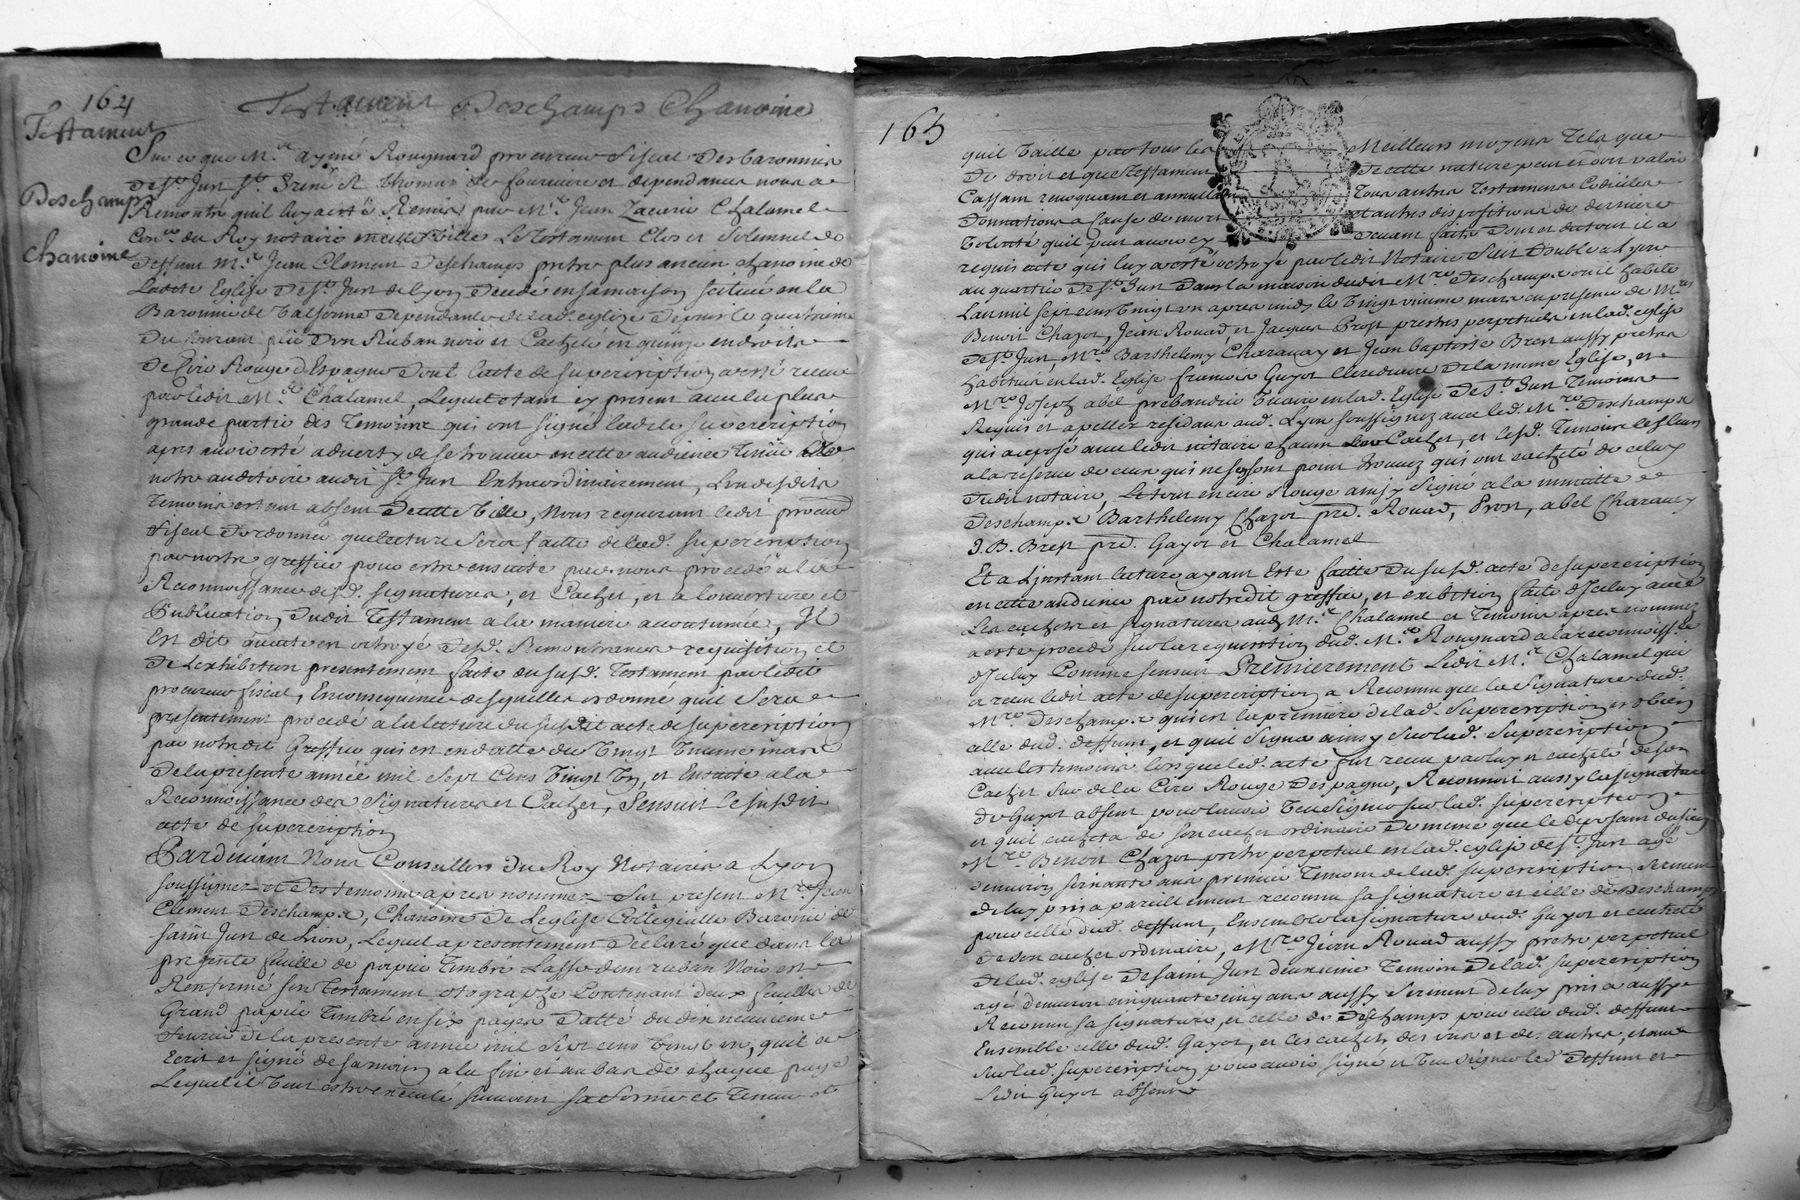 164
Testament Deschamps Chanoine
Testament
Deschamps
Chanoine
Sur ce que Me aymé Rougnard procureur fiscal des baronnies
de St Just St Irené St thomas de fourviere et dependances nous a
Remontré quil luy a esté Remis par Me Jean Zacarie Chalamel
Coner du Roy notaire en cette ville Le testament Clos et solemnel de
deffunt Mre Jean Clement Deschamps pretre plus ancien chanoine de
Ladite Eglise de St Just de Lyon decedé en sa maison scituée en la
Baronnie de dependante de lad. eglize depuis le quatrieme
du courant plié d'un Ruban noir et Cacheté en quinze endroits
de Cire Rouge d'Espagne dont lacte de supercription a esté receu
par ledit Me Chalamel, Lequel etant icy present avec la plus
grande partie des Temoins qui ont signé ladite supercription
apres avoir esté adverty de se trouver en cette audience tenüe
notre auditoire audit St Just Extraordinairement, L'un desdits
temoins estant absent de cette ville, nous requerant ledit procureur
fiscal d'ordonner que lecture sera faitte de lad. supercription
par nostre greffier pour estre ensuite par nous procedé a la
Reconnoissance desd. signatures, et Cachet, et a louverture et
Publication dudit Testament a la maniere accoutumée, Il
Est dit qu'acte en octroyé desd. Remontrances requisition et
de L'exhibition presentement faite du susd. testament par ledit
procureur fiscal, En consequence desquelles ordonné quil sera
presentement procedé a la lecture du susdit acte de supercription
par notre dit Greffier qui est en datte du vingt neuvieme mars
de la presente année mil sept cens vingt un, et Ensuite a la
Reconnoissance des signatures et Cachet, sensuit le susdit
acte de supercription
Pardevant Nous Conseillers du Roy Notaires a Lyon
soussignez et des temoins apres nommez fut present Mre Jean
Clement Deschamps, Chanoine de L'eglise Collegialle Baronie de
saint Just de Lion, Lequel a presentement declaré que dans la
presente feuille de papier timbré Lassé d'un ruban Noir est
Renfermé son testament otographe Contenant deux feuilles de
Grand papier timbré en six pages datté du dix neuvieme
fevrier de la presente année mil sept cens vingt un, quil a
Ecrit et signé de sa main a la fin et au bas de chaque page
Lequel il veut estre executé suivant sa forme et teneur et
165
quil vaille par tous les Meilleurs moyens tels que
de droit et que testament de cette nature peut et doit valoir
Cassant revoquant et annullant tous autres testamens Codiciles
donnations a Cause de mort et autres dispositions de derniere
volonté quil peut avoir cy devant faites dont et du tout il a
requis acte qui luy a esté octroyé par ledit Notaire fait double a Lyon
au quartier de St Just dans la maison dudit Mre Deschamps ou il habite
Lan mil sept cens vingt un apres midy le vingt neuvieme mars en presence de Mres
Benoit Chazot, Jean Rouad, et Jacques Prost prestres perpetuels en lad. eglise
de St Just, Mre Barthelemy Charavay et Jean baptiste Brest aussy pretres
habitués en lad. Eglise francois Guyot Clerc de la meme Eglise, et
Mre Joseph abel prebandier vicaire en lad. Eglise de St Just temoins
Requis et apellez residans aud. Lyon soussignez avec led. Mre Deschamps
qui a aposé avec ledit notaire chacun leur Cachet, et lesd. temoins les leurs
a la reserve de ceux qui ne sy sont point trouvez qui ont cacheté de celuy
dudit notaire, le tout en cire Rouge ainsy signé a la minutte
Deschamps Barthelemy Chazot pre. Rouad, Prost, abel Charavay
J. B. Brest pre. Guyot et Chalamel
Et a Linstant lecture ayant Esté faitte du susd. acte de supercription
en cette audience par notredit greffier, et exibition faite d'iceluy avec
Les cachets et signatures aud. Me Chalamel et temoins apres nommez
a esté procedé sur la requisition dud. Me Rougnard a la reconnoissce
d'iceluy Comme sensuit Premierement Ledit Me Chalamel qui
a receu ledit acte de supercription a Reconnu que la signature dud.
Mre Deschamps qui est la premiere de lad. supercription est bien
celle dud. deffunt, et quil signa ainsy sur lad. supercription
avec les temoins lors que led. acte fut receu par luy et cacheté de son
Cachet sur de la Cire Rouge Despagne, Reconnoit aussy la signature
de Guyot absent pour lavoir veu signer sur lad. supercription
et quil cacheta de son cachet ordinaire de meme que le deposant du sien
Mre Benoit Chazot pretre perpetuel en lad. eglise de St Just agé
denviron soixante ans premier temoin de lad. supercription serment
de luy pris a pareillement reconnu sa signature et celle de Deschamps
pour celle dud. deffunt, Ensemble la signature dud. Guyot et cacheté
de son cachet ordinaire, Mre Jean Rouad aussy pretre perpetuel
de lad. eglise de saint Just deuxieme temoin de lad. supercription
agé denviron cinquante cinq ans aussy serment de luy pris a aussy
Reconnu sa signature, et celle de Deschamps pour celle dud. deffunt
Ensemble celle dud. Guyot, et les cachets des uns et des autres, et
sur lad. supercription pour avoir signé et veu signer led. deffunt et
ledit Guyot absent